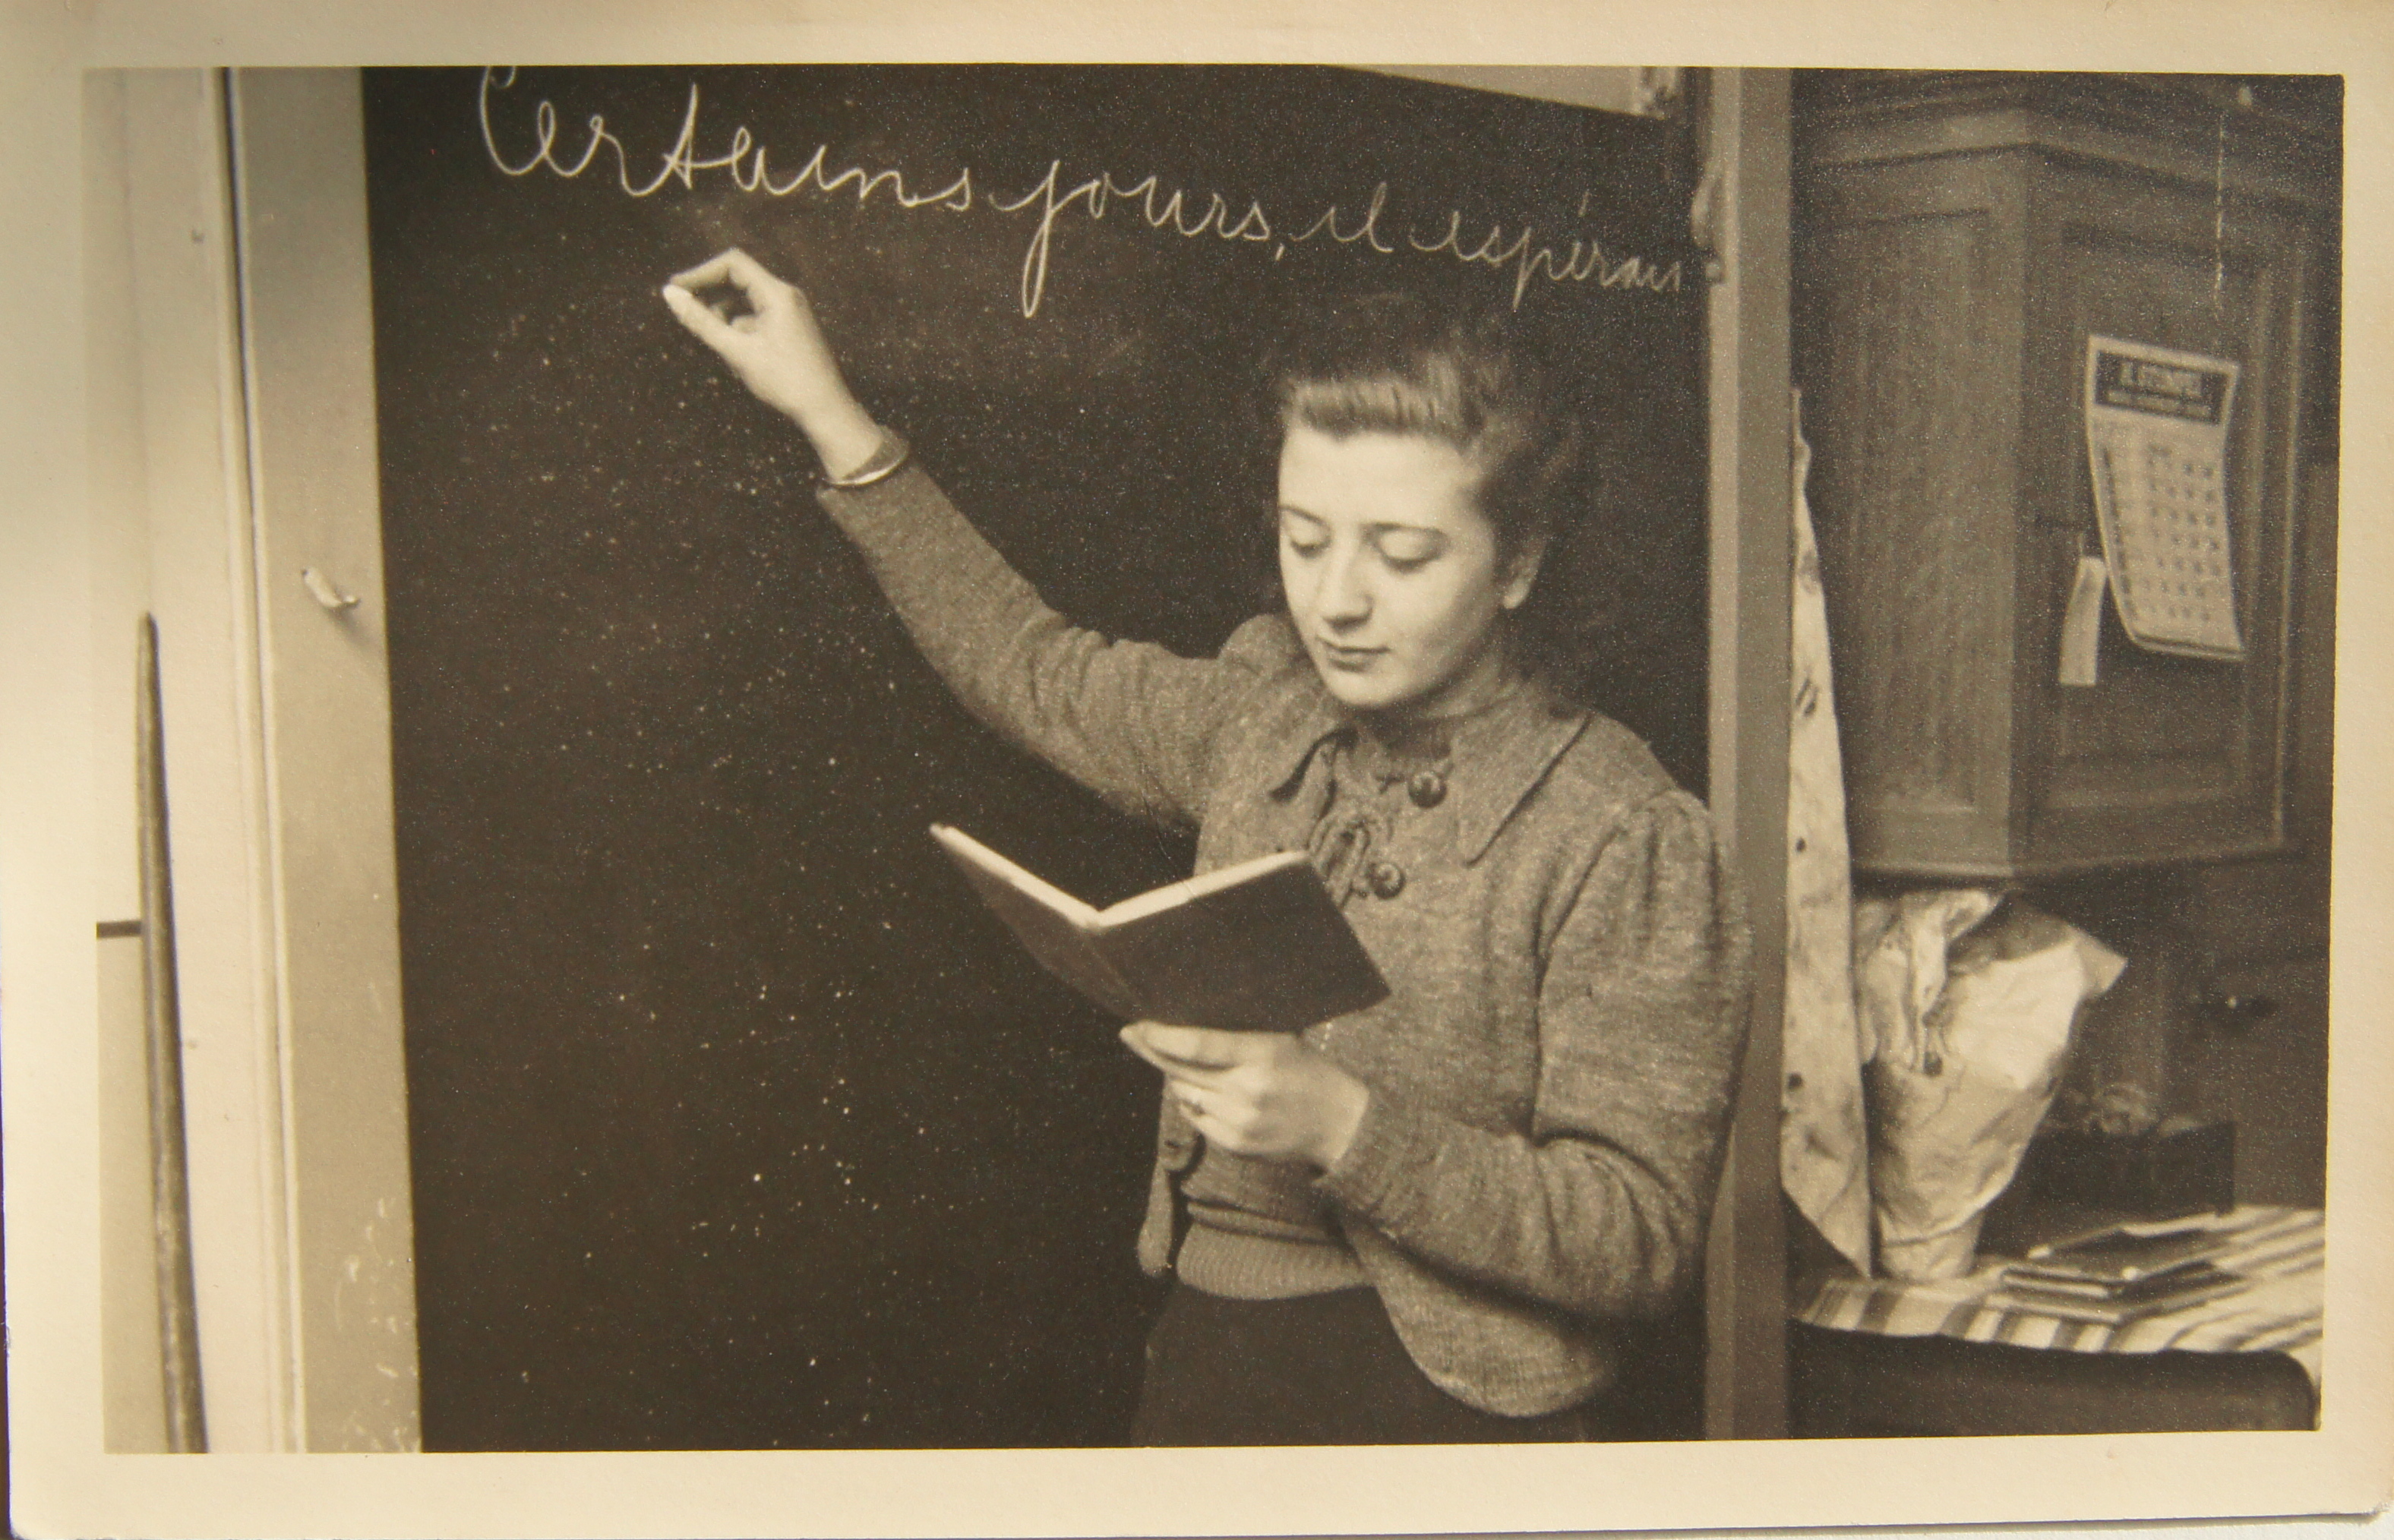 Certains jours, il espérait